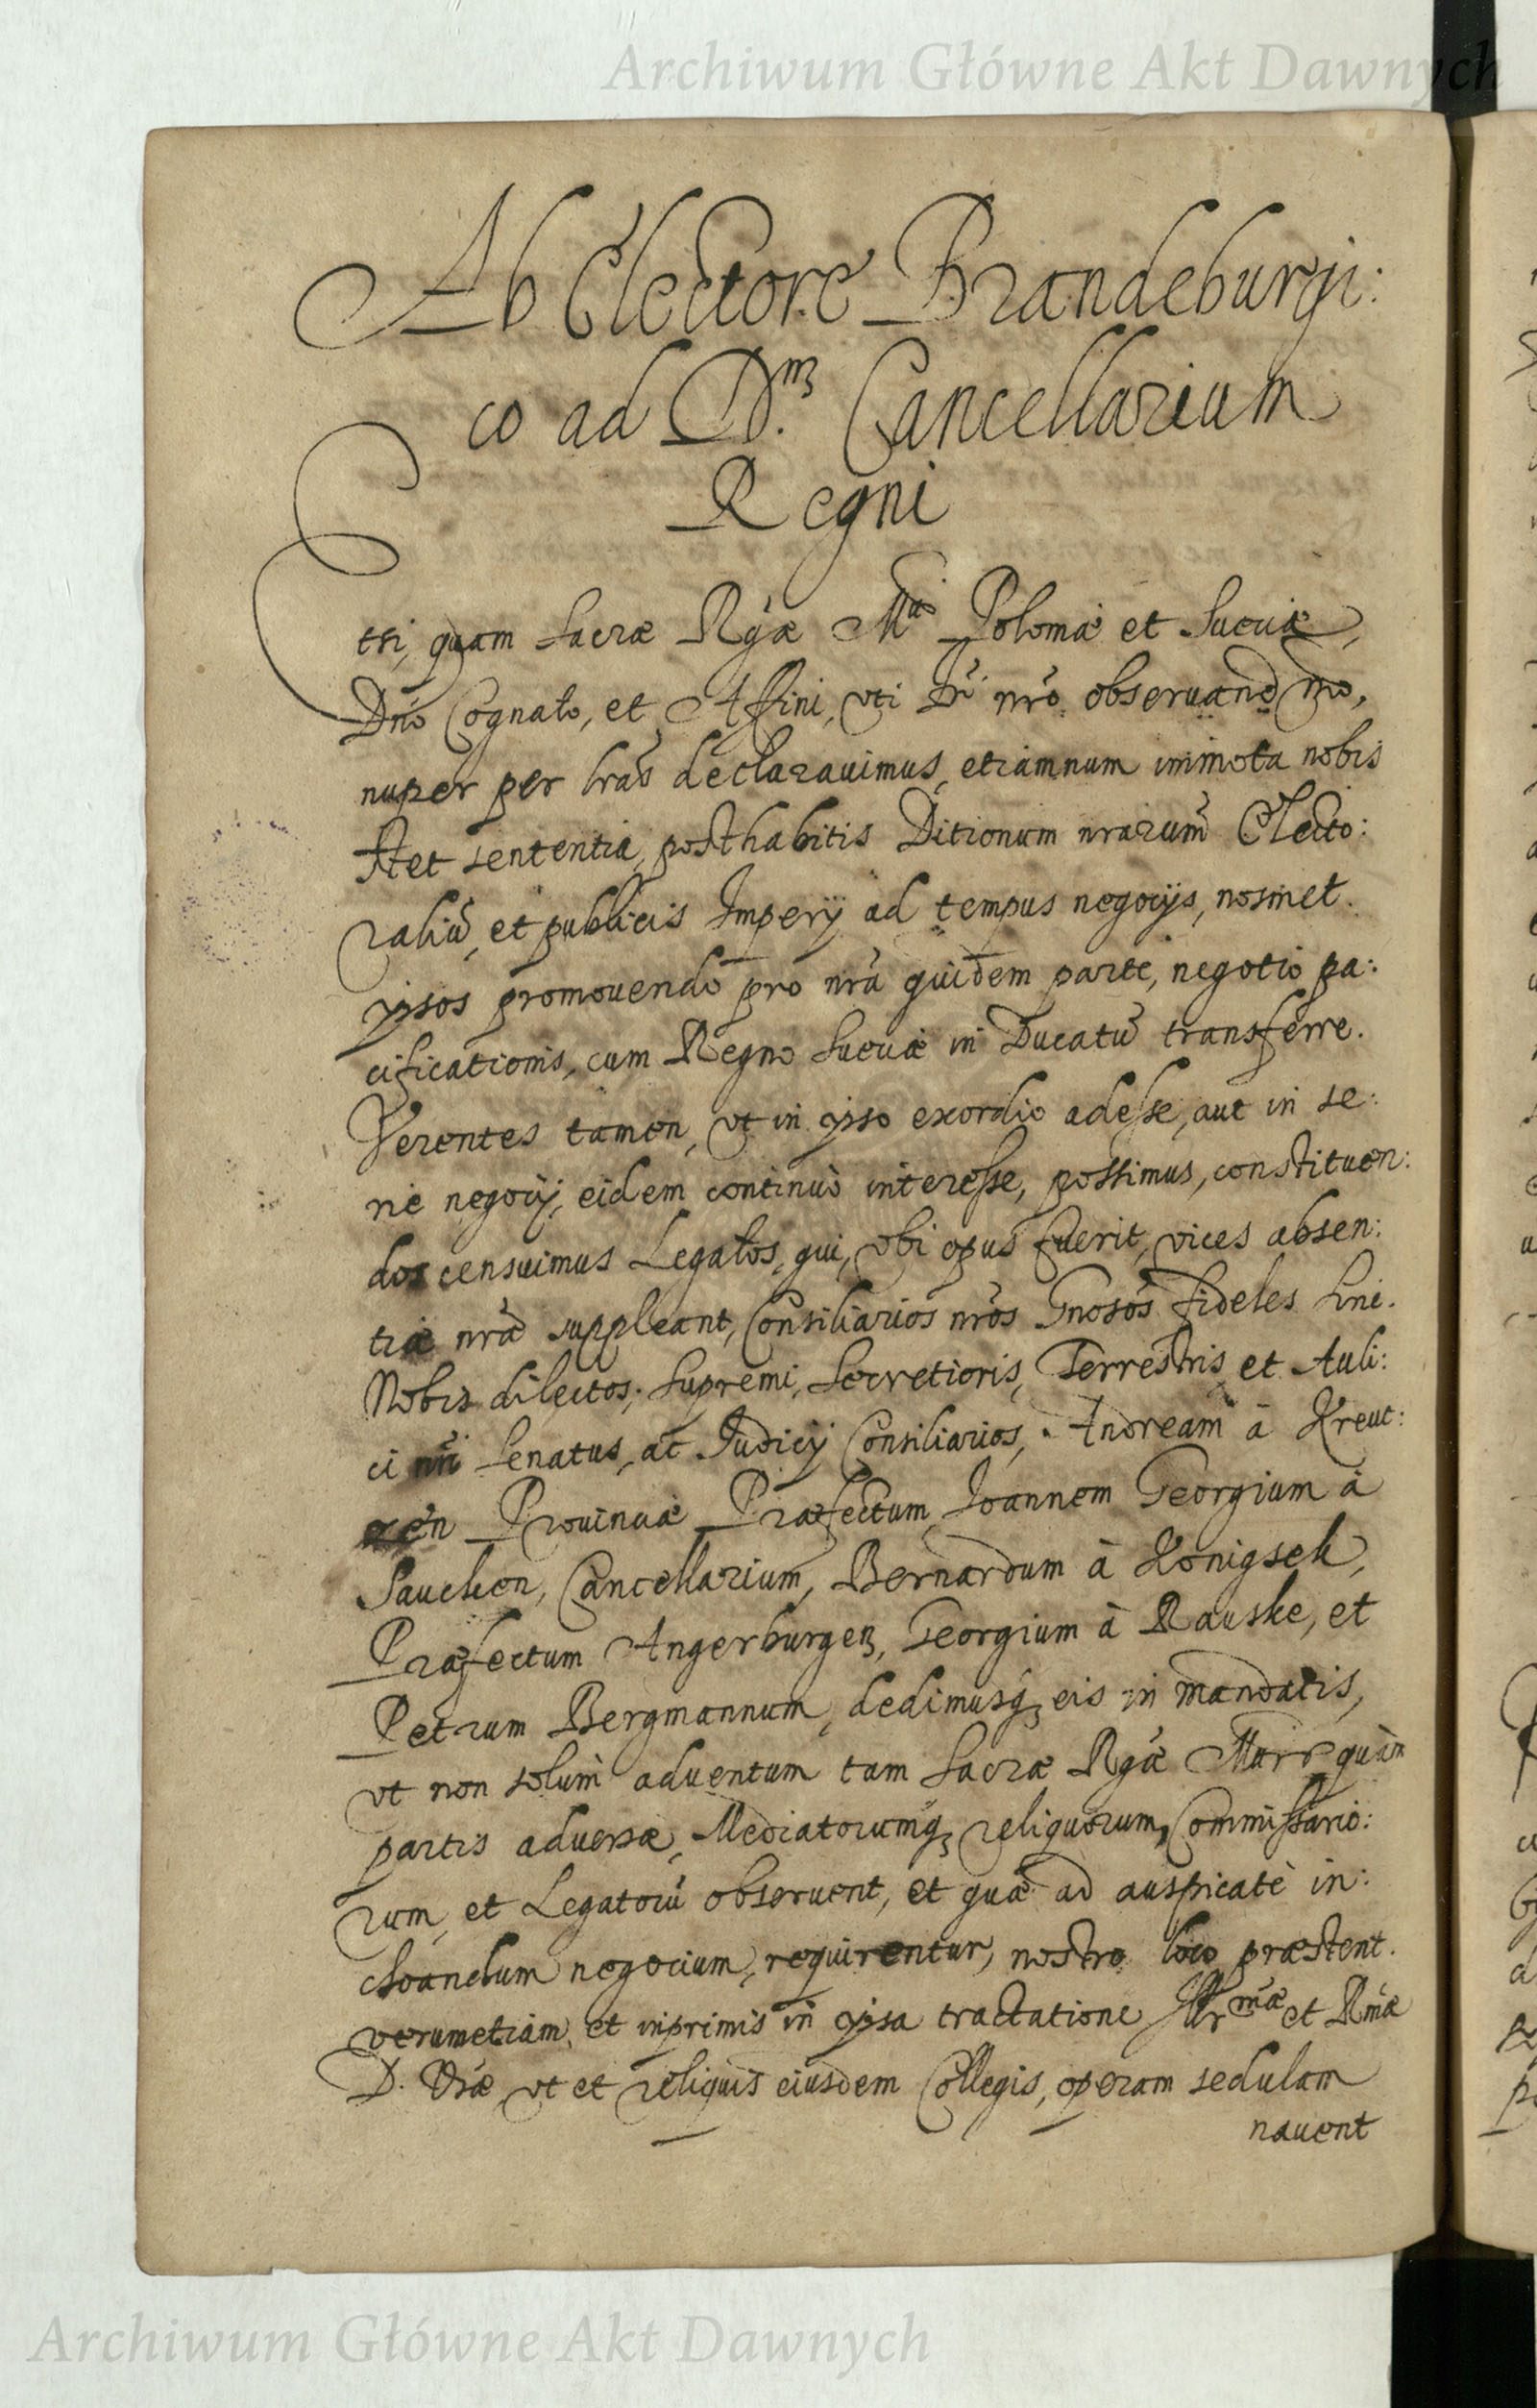 Archiwum Główne Akt Dawnych
Ab Electore Brandeburgi:
co ad D.m Cancellarium
Regni
Etsi, quam Sacræ Rgæ Mtis Poloniæ et Sueciæ,
Dno Cognato, et Affini, vti Dno nro obseruandmo,
nuper per lras declarauimus, etiamnum immota nobis
stet sententia, posthabitis Ditionum nrarum Electo:
raliũ, et publicis Imperij ad tempus negocijs, nosmet.
ipsos promouendo pro nrã quidem parte, negotio pa:
cificationis, cum Regno Sueciæ in Ducatũ transferre.
Verentes tamen, vt in ipso exordio adesse, aut in se:
rie negocij, eidem continuò interesse, possimus, constituen:
dos censuimus Legatos, qui, vbi opus fuerit, vices absen:
tiæ nræ suppleant, Consiliarios nros Gnosos fideles sinè.
Nobis dilectos, Supremi, Secretioris, Terrestris et Auli:
ci nri Senatus, ac Judicij Consiliarios, Andream à Kreut:
zen Prouinciæ Præfectum, Joannem Georgium à
Saucken, Cancellarium, Bernardum à Königsek,
Præfectum Angerburgen, Georgium à Rauske, et
Petrum Bergmannum, dedimusq; eis in mandatis,
vt non solùm aduentum tam Sacræ Rgæ quàm
partis aduersæ, Mediatorumq; reliquorum, Commissario:
rum, et Legatorũ obseruent, et quæ ad auspicatè in:
choandum negocium, requirentur, nostro loco præstent.
verumetiam, et inprimis in ipsa tractatione Illrmæ et Rmæ
D. Vræ, vt et reliquis eiusdem Collegis, operam sedulam
nauent
Archiwum Główne Akt Dawnych